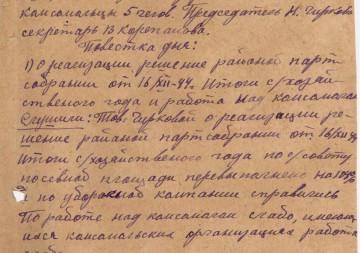 комсомольцы 5 челов. Председатель Н. Чиркова
секретарь В Корепанова.
Повестка дня:
1) О реализации решение районой парт
собрании от 16/XII-44г. Итоги с/хозяй
ственого года и работа над комсомолом
Слушили: Тов. Чирковой о реализации ре-
шение районой партсобрании от 16/XII-44
Итоги с/хозяйственого года по с/совету
посевной площади перевыполнено на
по уборочной компании справились
По работе над комсомолом слабо, имеющ
ихся комсомольских организациях работа